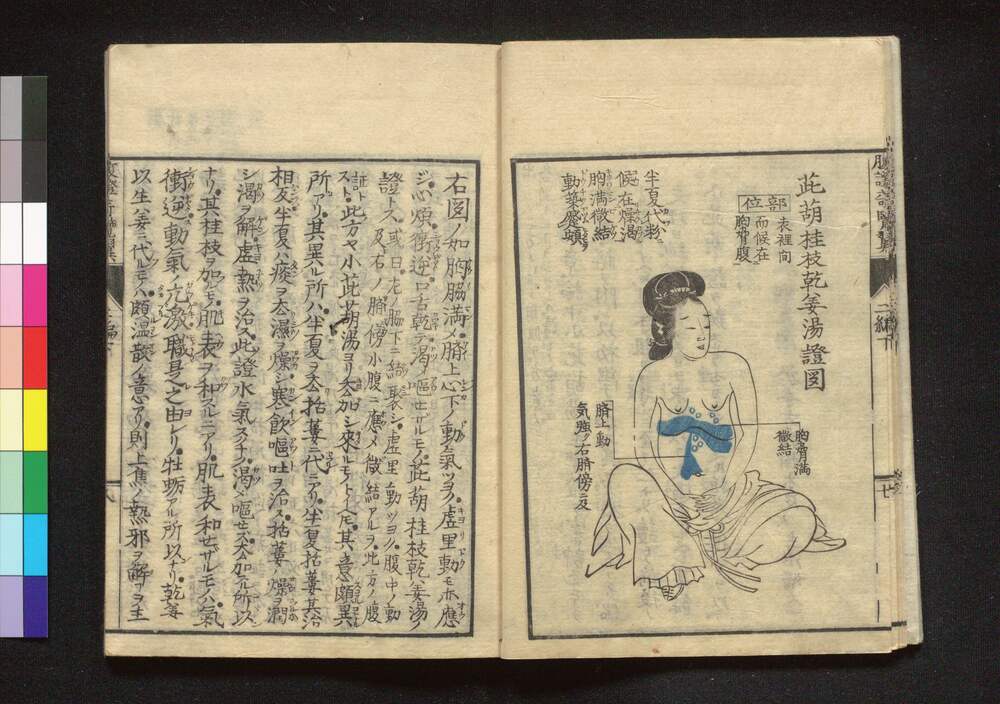 茈胡桂枝乾姜湯證図
部位
表裡向
而候在
胸脅腹
半夏代粉
候在燥渇
胸満微結
動築發頗
胸脅満
微結
臍上動
気強ノ右臍傍ニ及
二編下
七
右図ノ如胸脇満メ臍上心下ノ動氣ツヨク虚里動モ亦應
ジ心煩衝逆口舌乾テ渇メ嘔セザルモノ茈胡桂枝乾姜湯ノ
證トス或曰左ノ脇下ニ結聚シ虚里動ツヨク腹中ノ動
及右ノ臍傍小腹ニ應メ微結アルヲ此方ノ腹
証トスト此方ヤ小茈胡湯ヨリ去加シ來ルモノトイヘ𪜈其意頗異
所アリ其異ル所ハ半夏ヲ去括蔞ニ代ニアリ半夏括蔞其治
相反半夏ハ痰ヲ去濕ヲ燥シ寒飲嘔吐ヲ治ス括蔞ハ燥ヲ潤
シ渇ヲ解虚熱ヲ治ス此證水氣スクナク渇メ嘔セズ去加ル所以
ナリ其桂枝ヲ加ルモ肌表ヲ和スルニアリ肌表和セザルモノハ氣
衝逆動氣ノ亢激職之由レリ牡蛎アル所以ナリ乾姜
以生姜ニ代ルモノハ頗温散ノ意アリ則上焦ノ熱邪ヲ解ヲ主